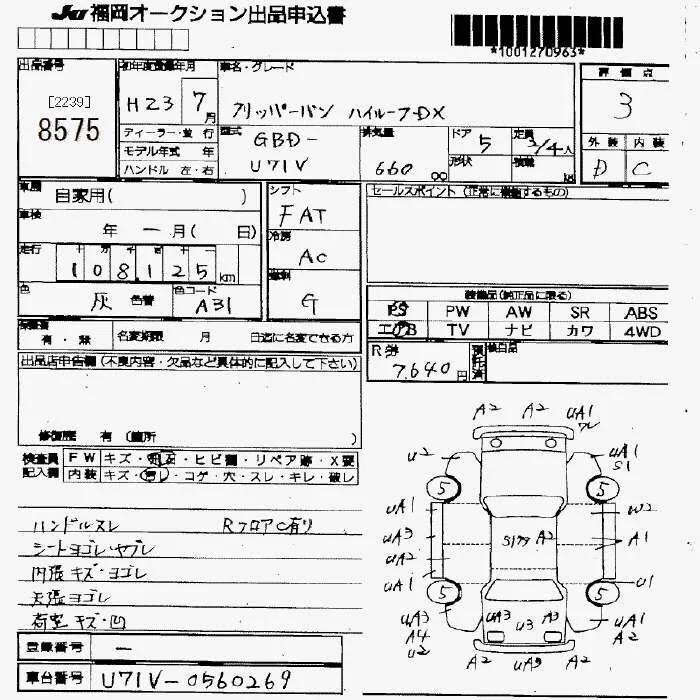 JU 福岡オークション出品申込書
*1001270963*
出品番号
[2239]
8575
初年度登録年月
H23 7月
車名・グレード
クリッパーバン ハイルーフDX
評価点
3
ディーラー・並行
モデル年式 年
ハンドル 左・右
型式
GBD-
U71V
排気量
660 cc
ドア 5
形状
定員 2/4人
積載 kg
外装 内装
D C
車歴 自家用( )
車検 年 ー月( 日)
走行 十万千百十
108125 km
色 灰 色替
色コード A31
シフト
FAT
冷房
AC
燃料
G
セールスポイント(正常に機能するもの)
装備品(純正品に限る)
PS PW AW SR ABS
エアB TV ナビ カワ 4WD
保証書 有・無 名変期限 月 日迄に名変できる方
R券 7,640円 預託済 後日品
出品店申告欄(不良内容・欠品など具体的に記入して下さい)
修復歴 有 (箇所 )
検査員記入欄
FW キズ・飛石・ヒビ割・リペア跡・X要
内装 キズ・汚レ・コゲ・穴・スレ・キレ・破レ
ハンドルスレ RフロアC有り
シートヨゴレ・ヤブレ
内張キズ・ヨゴレ
天張ヨゴレ
荷室キズ・凹
登録番号 ー
車台番号 U71V-0560269
A2 A2 UA1
ワレ
U2 UA1
S1
5 5
UA1 W2
UA3 A2 A1
UA2
UA1 U1
5 5
UA3 UA3 U3 A3 UA1
A4 A2
U2
A2 UA3 A2